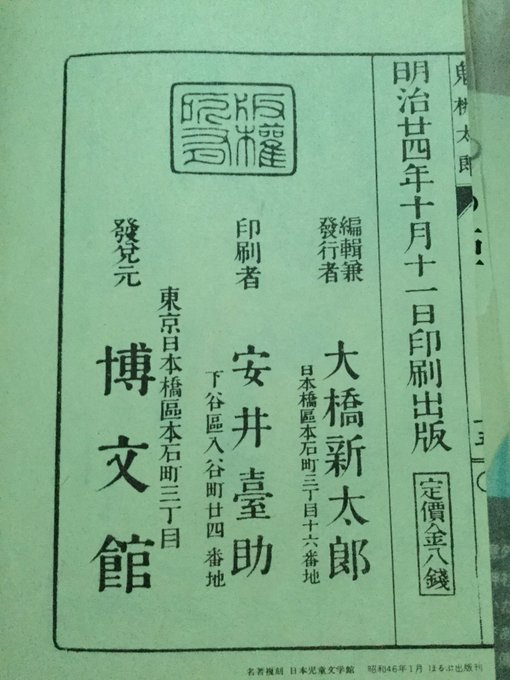 鬼桃太郎
明治廿四年十月十一日印刷出版
定價金八錢
編輯兼
發行者
大橋新太郎
日本橋區本石町三丁目十六番地
印刷者
安井臺助
下谷區入谷町廿四番地
發兌元
東京日本橋區本石町三丁目
博文館
版權
所有
名著複刻 日本児童文学館 昭和46年1月 ほるぷ出版刊